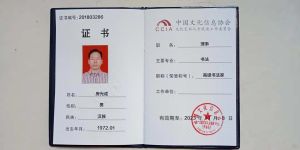 证书编号: 201803286
证 书
姓名
性别 男
民族 汉族
出生年月 1972.01
中国文化信息协会
CCIA
职务 理事
主要专业 书法
职称(荣誉称号): 高级书法家
工作单位
有效期至: 2023年